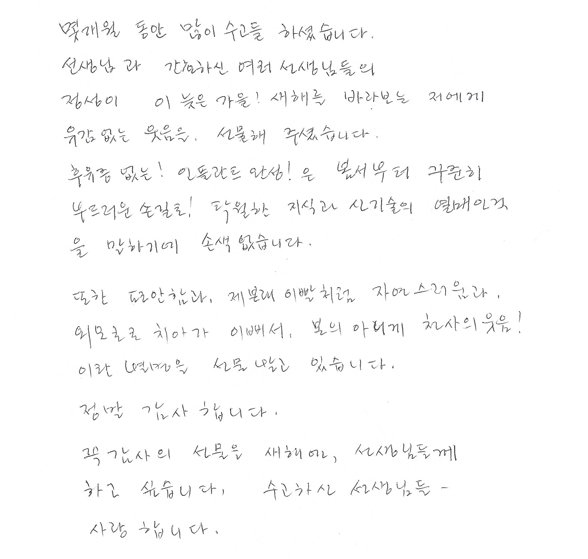 몇개월 동안 많이 수고들 하셨습니다.
선생님과 간호하신 여러 선생님들의
정성이 이 늦은 가을! 새해를 바라보는 저에게
유감없는 웃음을, 선물해 주셨습니다.
후유증 없는! 인플란트 완성! 은 봄서부터 꾸준히
부드러운 손길로! 탁월한 지식과 신기술의 열매인것
을 말하기에 손색 없습니다.
또한 편안함과, 제본래 이빨처럼 자연스러움과,
외모로로 치아가 이뻐서, 본의 아니게 천사의 웃음!
이란 별명을 선물 받고 있습니다.
정말 감사 합니다.
꼭 감사의 선물을 새해에, 선생님들께
하고 싶습니다. 수고하신 선생님들 -
사랑 합니다.